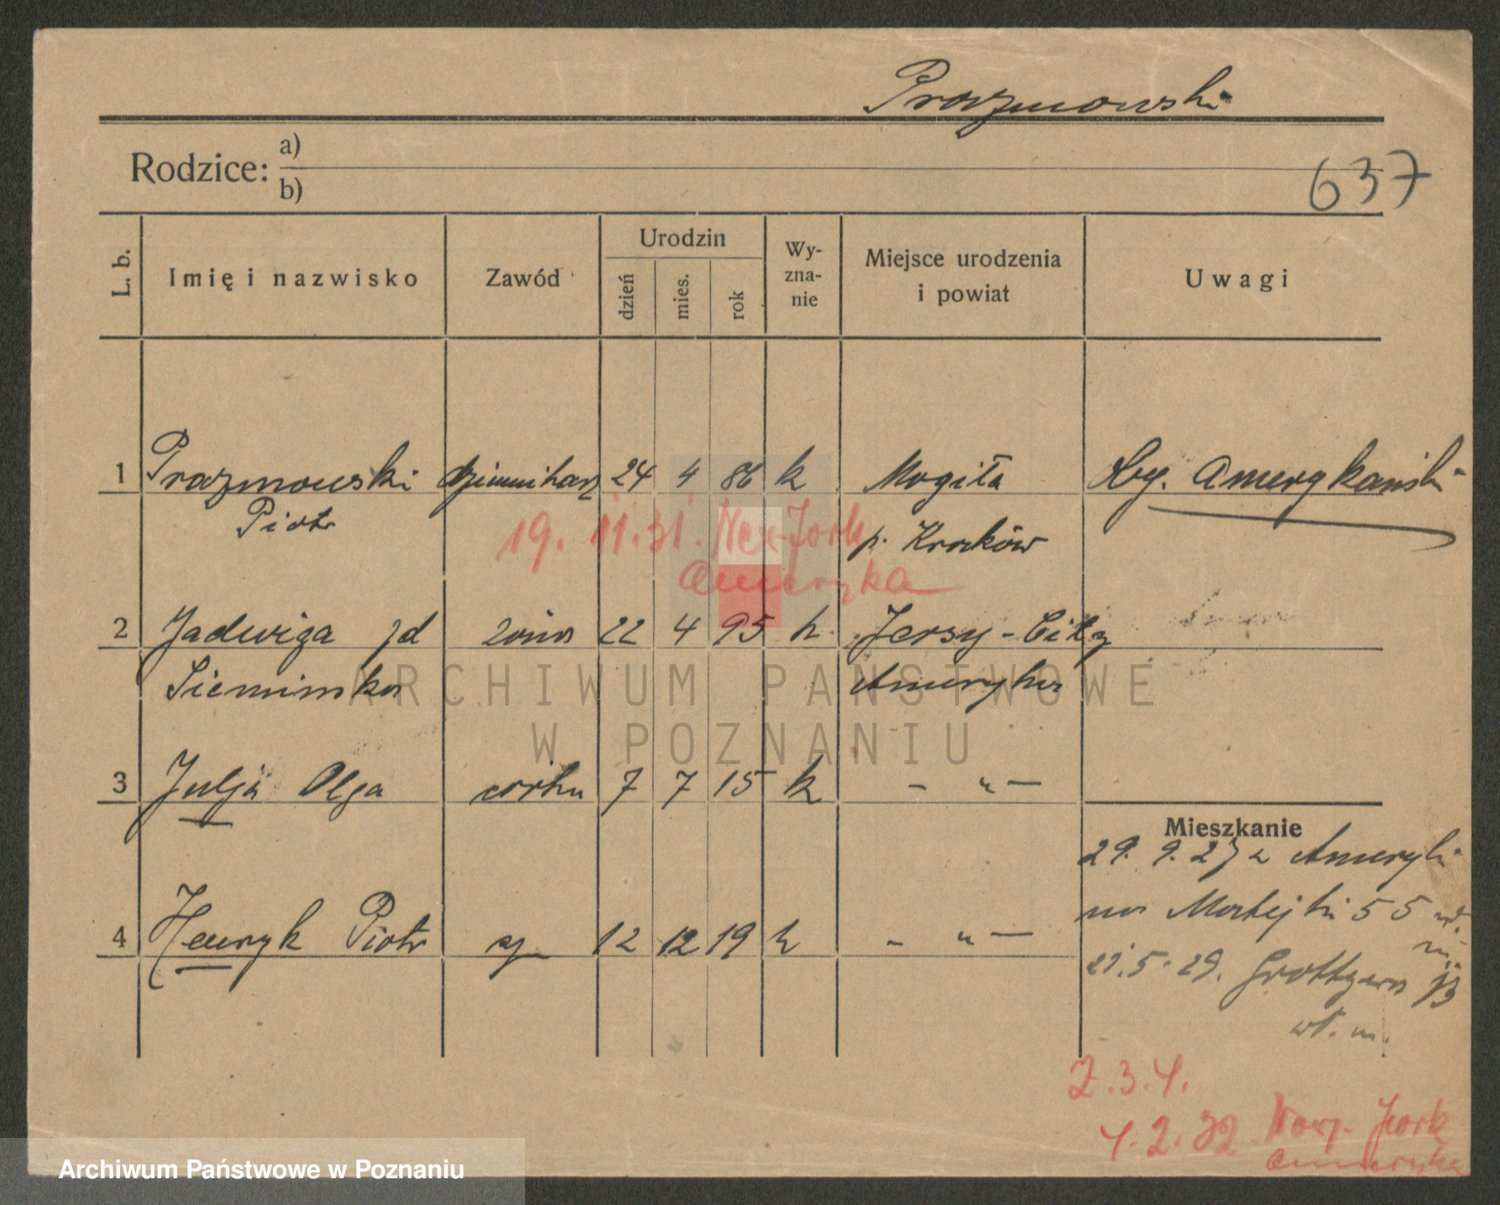 Prazmowski
Rodzice: a)
b)
637
L. b.
Imię i nazwisko
Zawód
Urodzin
dzień
mies.
rok
Wy-
zna-
nie
Miejsce urodzenia
i powiat
Uwagi
1 Prazmowski 24 4 86 k Mogiła
Piotr p. Kraków
19. 11. 31. New-Jork
Ameryka
2 Jadwiga 22 4 95 k. Jersy-City
Ameryka
3 Julja Olga córka 7 7 15 k - " -
4 Henryk Piotr 12 12 19 k - " -
Mieszkanie
29. 9. 27 z Ameryki
na Matejki 55
21. 5. 29. Grottgera
wł. m.
2. 3. 4.
4. 2. 32 Nowy-Jork
Ameryka
ARCHIWUM PAŃSTWOWE
W POZNANIU
Archiwum Państwowe w Poznaniu